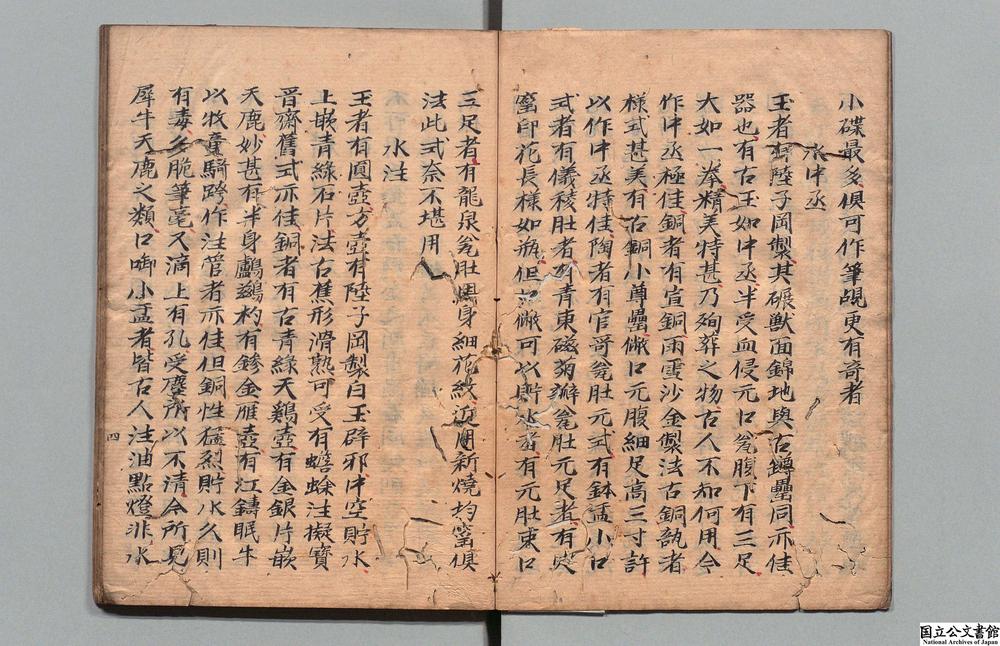 小碟最多俱可作筆覘更有奇者
水中丞
玉者有陸子岡製其碾獸面錦地與古鐏罍同亦佳
器也有古玉如中丞半受血侵元口瓮腹下有三足
大如一拳精美特甚乃殉葬之物古人不知何用今
作中丞極佳銅者有宣銅雨雪沙金製法古銅瓿者
樣式甚美有古銅小尊罍做口元腹細足高三寸許
以作中丞特佳陶者有官哥瓮肚元式有鉢盂小口
式者有儀稜肚者有青東磁菊瓣瓮肚元足者有定
窑印花長樣如瓶但口做可以貯水者有元肚束口
三足者有龍泉瓮肚周身細花紋近用新燒均窑俱
法此式奈不堪用
水注
玉者有圓壺方壺有陸子岡製白玉辟邪中空貯水
上嵌青綠石片法古蕉形滑熟可受有蟾蜍注擬寶
晋齋舊式亦佳銅者有古青綠天鷄壺有金銀片嵌
天鹿妙甚有半身鸕鷀杓有鏒金雁壺有江鑄眠牛
以牧童騎跨作注管者亦佳但銅性猛烈貯水久則
有毒多脆筆毫又滴上有孔受塵所以不清今所見
犀牛天鹿之類口啣小盂者皆古人注油點燈非水
四
国立公文書館
National Archives of Japan